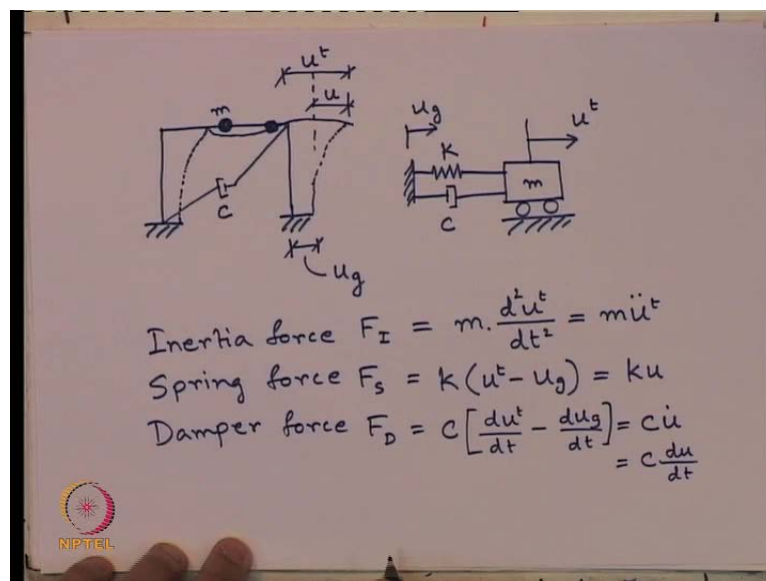 uᵗ
u
m
C
u_g
u_g
K
C
m
uᵗ
Inertia force F_I = m. d²uᵗ/dt² = müᵗ
Spring force F_S = k(uᵗ - u_g) = ku
Damper force F_D = C[duᵗ/dt - du_g/dt] = Cu̇
= C du/dt
NPTEL